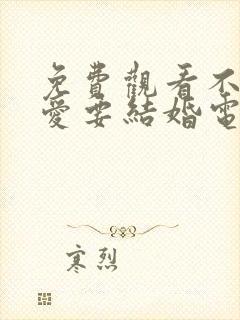 免費觀看不
愛要結婚電
寒烈